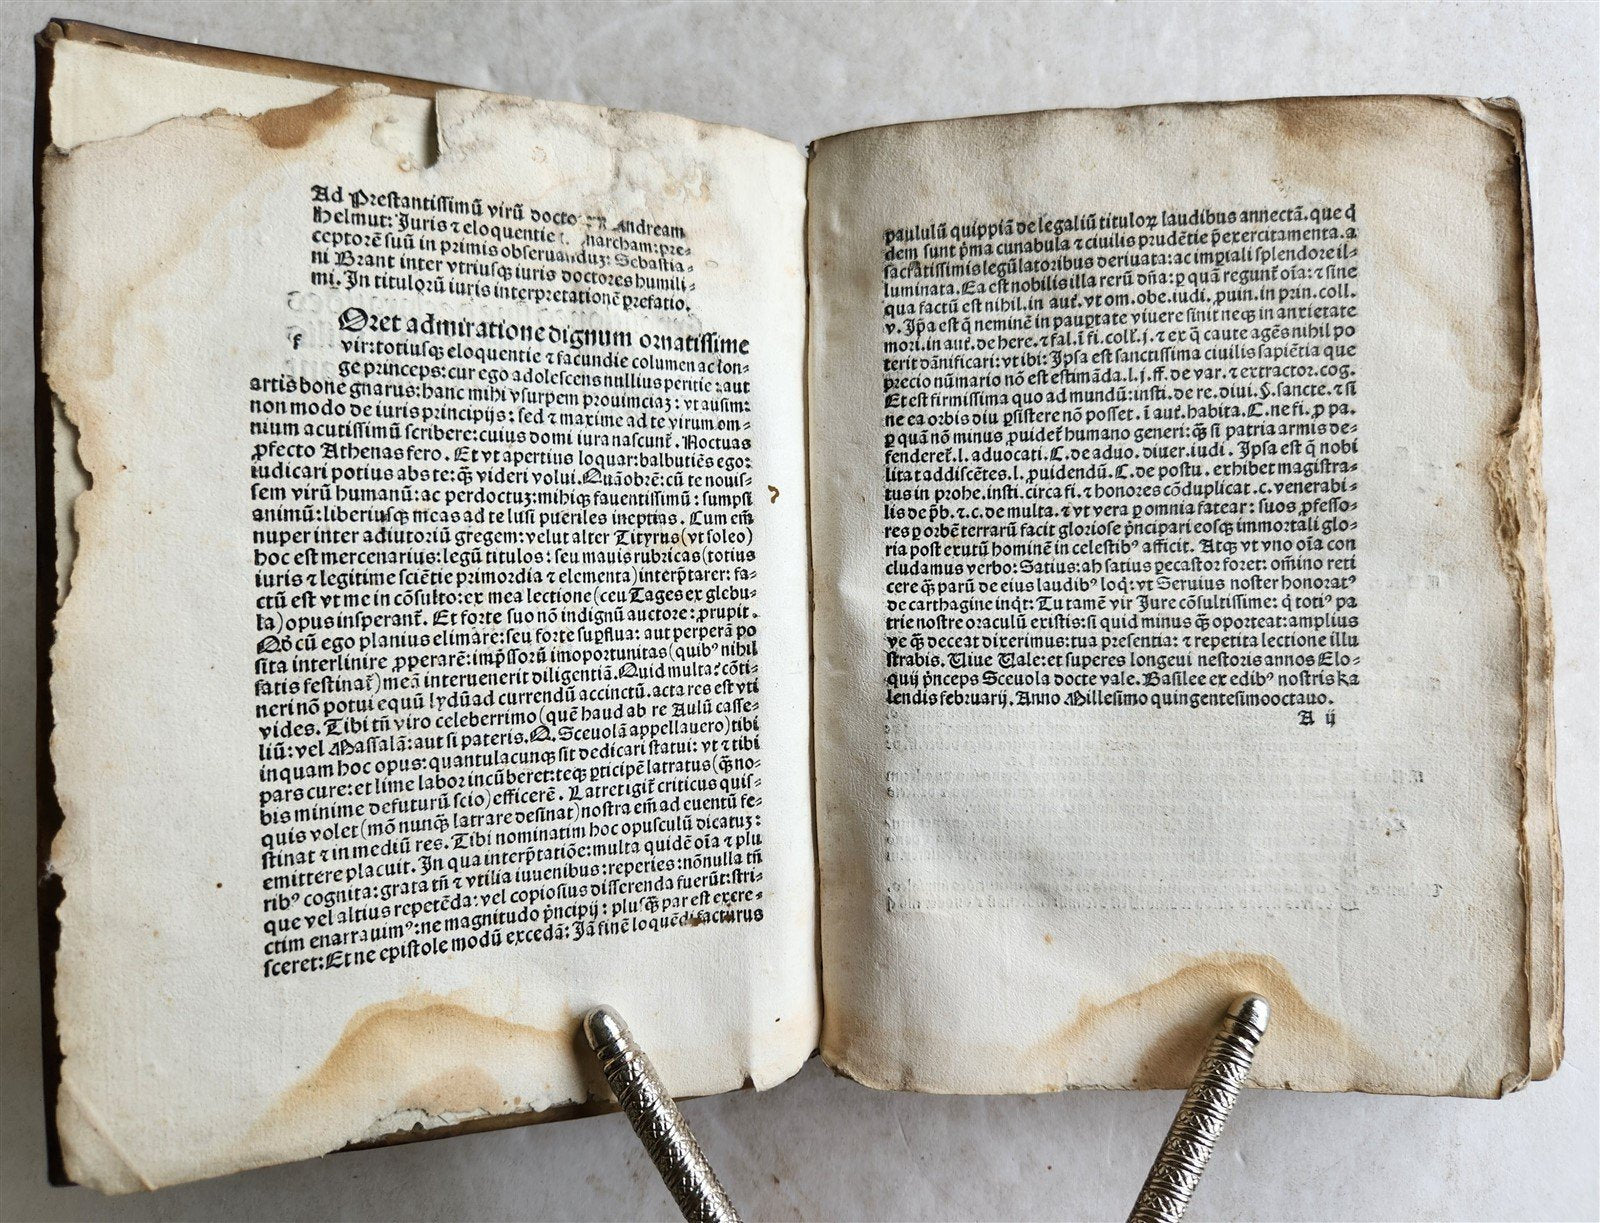 Ad Prestantissimū virū docto Andream
Helmut: Juris ⁊ eloquentie archam: pre⸗
ceptorē suū in primis obseruanduȝ: Sebastia⸗
ni Brant inter vtriusqꝫ iuris doctores humili⸗
mi. In titulorū iuris interpretationē ꝑefatio.
Oret admiratione dignum ornatissime
f
vir: totiusqꝫ eloquentie ⁊ facundie columen ac lon⸗
ge princeps: cur ego adolescens nullius peritie: aut
artis bone gnarus: hanc mihi vsurpem prouinciaȝ: vt ausim:
non modo de iuris principijs: sed ⁊ maxime ad te virum om⸗
nium acutissimū scribere: cuius domi iura nascunt᷑. Noctuas
ꝓfecto Athenas fero. Et vt apertius loquar: balbutiēs ego:
iudicari potius abs te: qꝫ̄ videri volui. Quāobrē: cū te nouis⸗
sem virū humanū: ac perdoctuȝ: mihiqꝫ fauentissimū: sumpsi
animū: liberiusqꝫ meas ad te lusi pueriles ineptias. Cum em̄
nuper inter adiutoriū gregem: velut alter Tityrus (vt soleo)
hoc est mercenarius: legū titulos: seu mauis rubricas (totius
iuris ⁊ legitime sciētie primordia ⁊ elementa) interp̄tarer: fa⸗
ctū est vt me in cōsulto: ex mea lectione (ceu Tages ex glebu⸗
la) opus insperant᷑. Et forte suo nō indignū auctore: ꝓrupit.
Qd̓ cū ego planius elimare: seu forte suꝑflua: aut perperā po
sita interlinire ꝓperarē: imp̄ssorū imoportunitas (quibꝰ nihil
satis festinat᷑) meā interuenerit diligentiā. Quid multa? cōti⸗
neri nō potui equū lydū ad currendū accinctū. acta res est vti
vides. Tibi tn̄ viro celeberrimo (quē haud ab re Aulū casse⸗
liū: vel Massalā: aut si pateris. Q. Sceuolā appellauero) tibi
inquam hoc opus: quantulacunqꝫ sit dedicari statui: vt ⁊ tibi
pars cure: et lime labor incūberet: teqꝫ ꝑticipē latratus (qꝫ̄ no⸗
bis minime defuturū scio) efficerē. Latret igit᷑ criticus quis⸗
quis volet (mō nunqꝫ̄ latrare desinat) nostra em̄ ad euentū fe⸗
stinat ⁊ in mediū res. Tibi nominatim hoc opusculū dicatuȝ:
emittere placuit. In qua interp̄tatiōe: multa quidē oīa ⁊ plu
ribꝰ cognita: grata tn̄ ⁊ vtilia iuuenibus: reperies: nōnulla tn̄
que vel altius repetēda: vel copiosius disserenda fuerūt: stri⸗
ctim enarrauimꝰ: ne magnitudo p̄ncipij: plusqꝫ̄ par est excre⸗
sceret: Et ne epistole modū excedā: Jā finē loquēdi facturus
paululū quippiā de legaliū titulorꝝ laudibus annectā. que q̓
dem sunt p̄ma cunabula ⁊ ciuilis prudētie p̄exercitamenta. a
sacratissimis legū latoribus deriuata: ac imꝑiali splendore il⸗
luminata. Ea est nobilis illa rerū dn̄a: ꝑ quā regunt᷑ oīa: ⁊ sine
qua factū est nihil. in aut᷑. vt om. obe. iudi. ꝓuin. in prin. coll.
v. Ip̄a est q̄ neminē in pauꝑtate viuere sinit neqꝫ in anxietate
mori. in aut᷑. de here. ⁊ fal. ī fi. coll. j. ⁊ ex q̄ caute agēs nihil po
terit dānificari: vt ibi: Ipsa est sanctissima ciuilis sapiētia que
precio nūmario nō est estimāda. l. j. ff. de var. ⁊ extractor. cog.
Et est firmissima quo ad mundū: insti. de re. diui. §. sancte. ⁊ si
ne ea orbis diu ꝑsistere nō posset. ī aut᷑. habita. C. ne fi. ꝓ pa.
ꝑ quā nō minus ꝓuidet᷑ humano generi: qꝫ̄ si patria armis de⸗
fenderet᷑. l. aduocati. C. de aduo. diuer. iudi. Ipsa est q̄ nobi
litat addiscētes. l. ꝓuidendū. C. de postu. exhibet magistra⸗
tus in prohe. insti. circa fi. ⁊ honores cōduplicat. c. venerabi⸗
lis de p̄b. ⁊. c. de multa. ⁊ vt vera ꝑ omnia fatear: suos ꝓfesso⸗
res ꝑ orbē terrarū facit gloriose p̄ncipari eosqꝫ immortali glo⸗
ria post exutū hominē in celestibꝰ afficit. Atqꝫ vt vno oīa con
cludamus verbo: Satius: ah satius ꝑecastor foret: om̄ino reti
cere qꝫ̄ parū de eius laudibꝰ loq̓: vt Seruius noster honoratꝰ
de carthagine inq̓t: Tu tamē vir Jure cōsultissime: q̓ totiꝰ pa
trie nostre oraculū existis: si quid minus qꝫ̄ oporteat: amplius
ve qꝫ̄ deceat dixerimus: tua presentia: ⁊ repetita lectione illu
strabis. Viue Vale: et superes longeui nestoris annos Elo⸗
quij p̄nceps Sceuola docte vale. Basilee ex edibꝰ nostris ka
lendis februarij. Anno Millesimo quingentesimooctauo.
A ij